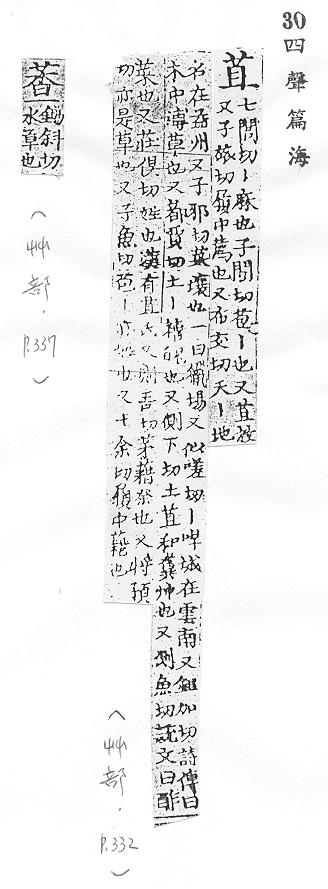 30四聲篇海
苴
七閭切丨麻也子閭切苞丨也又苴杖
又子旅切履中薦也又布交切天丨地
名在益州又子邪切菜壞也一曰獵場又似嗟切丨咩城在雲南又鉏加切詩傳曰
木中浮草也又都賈切土丨也又側下切土苴和糞艸也又側魚切説文曰酢
菜也又莊俱切姓也漢有苴氏又則吾切茅藉祭也又將預
切亦是草也又子魚切苞丨亦姓也又七余切履中藉也
(艸部.P.332)
䔖
鉏斜切
水草也
(艸部.P.337)